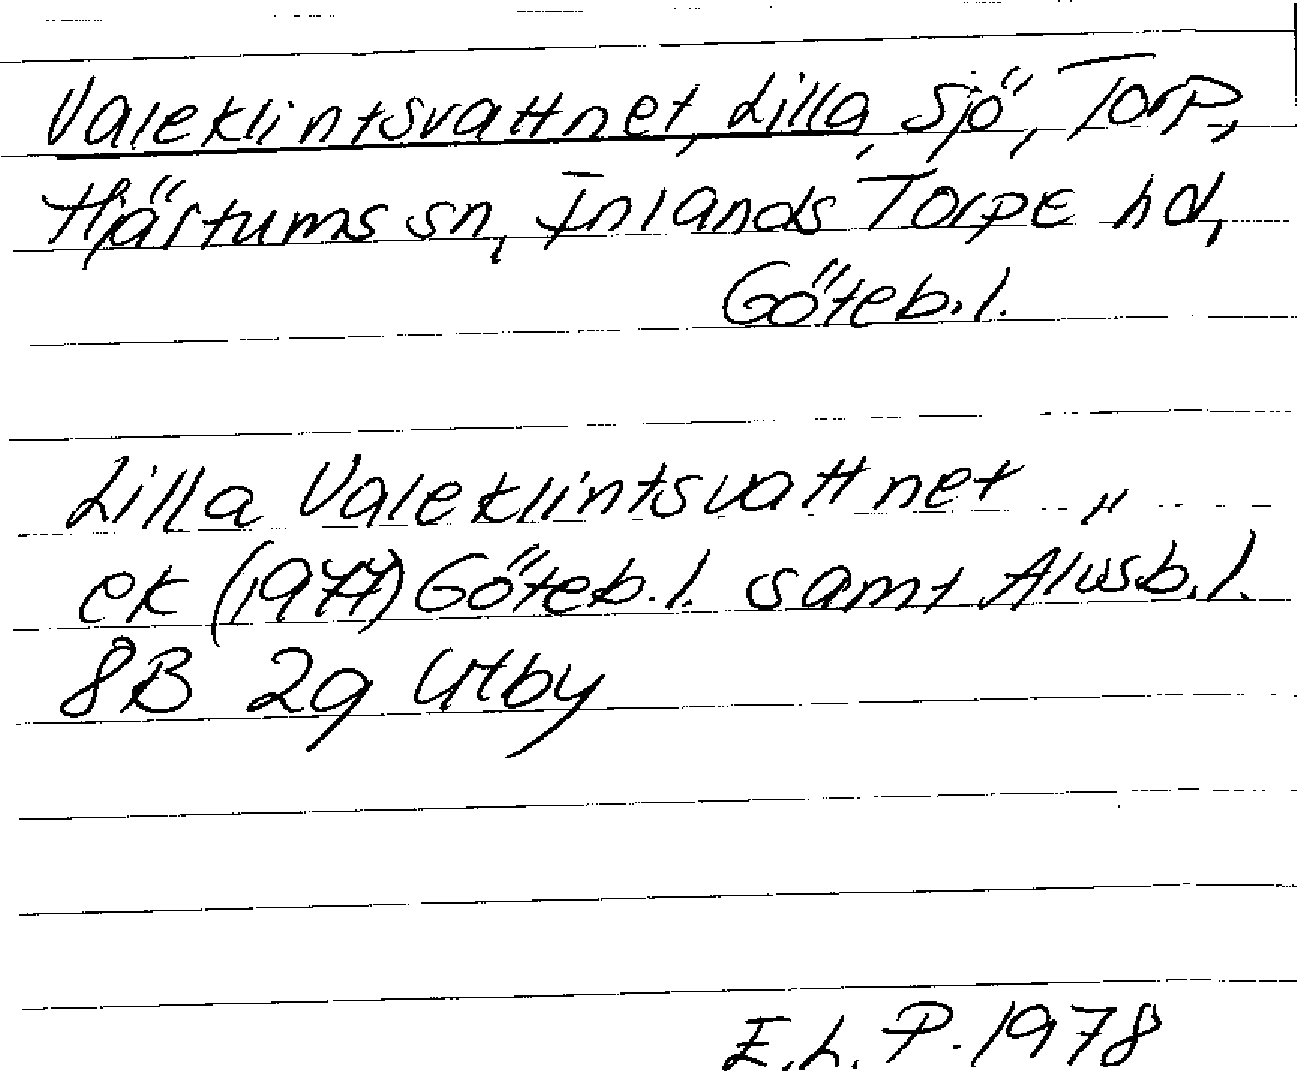 Valeklintsvattnet, Lilla, sjö, Torp,
Hjärtums sn, Inlands Torpe hd,
Göteb. l.
Lilla Valeklintsvattnet "
ek (1977) Göteb. l. samt Älvsb. l.
8B 2g Utby
E. L. P. 1978